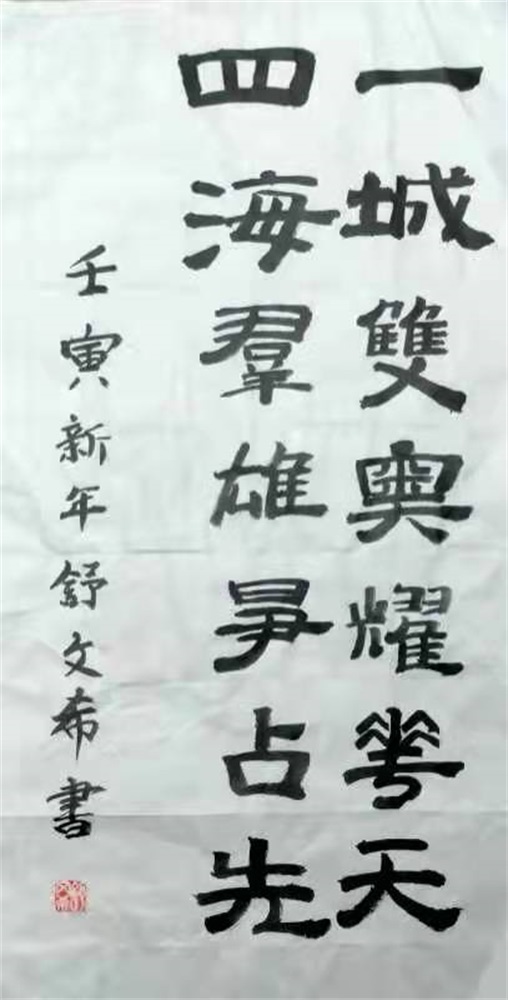 一城雙奧耀華天
四海羣雄爭占先
壬寅新年舒文希書